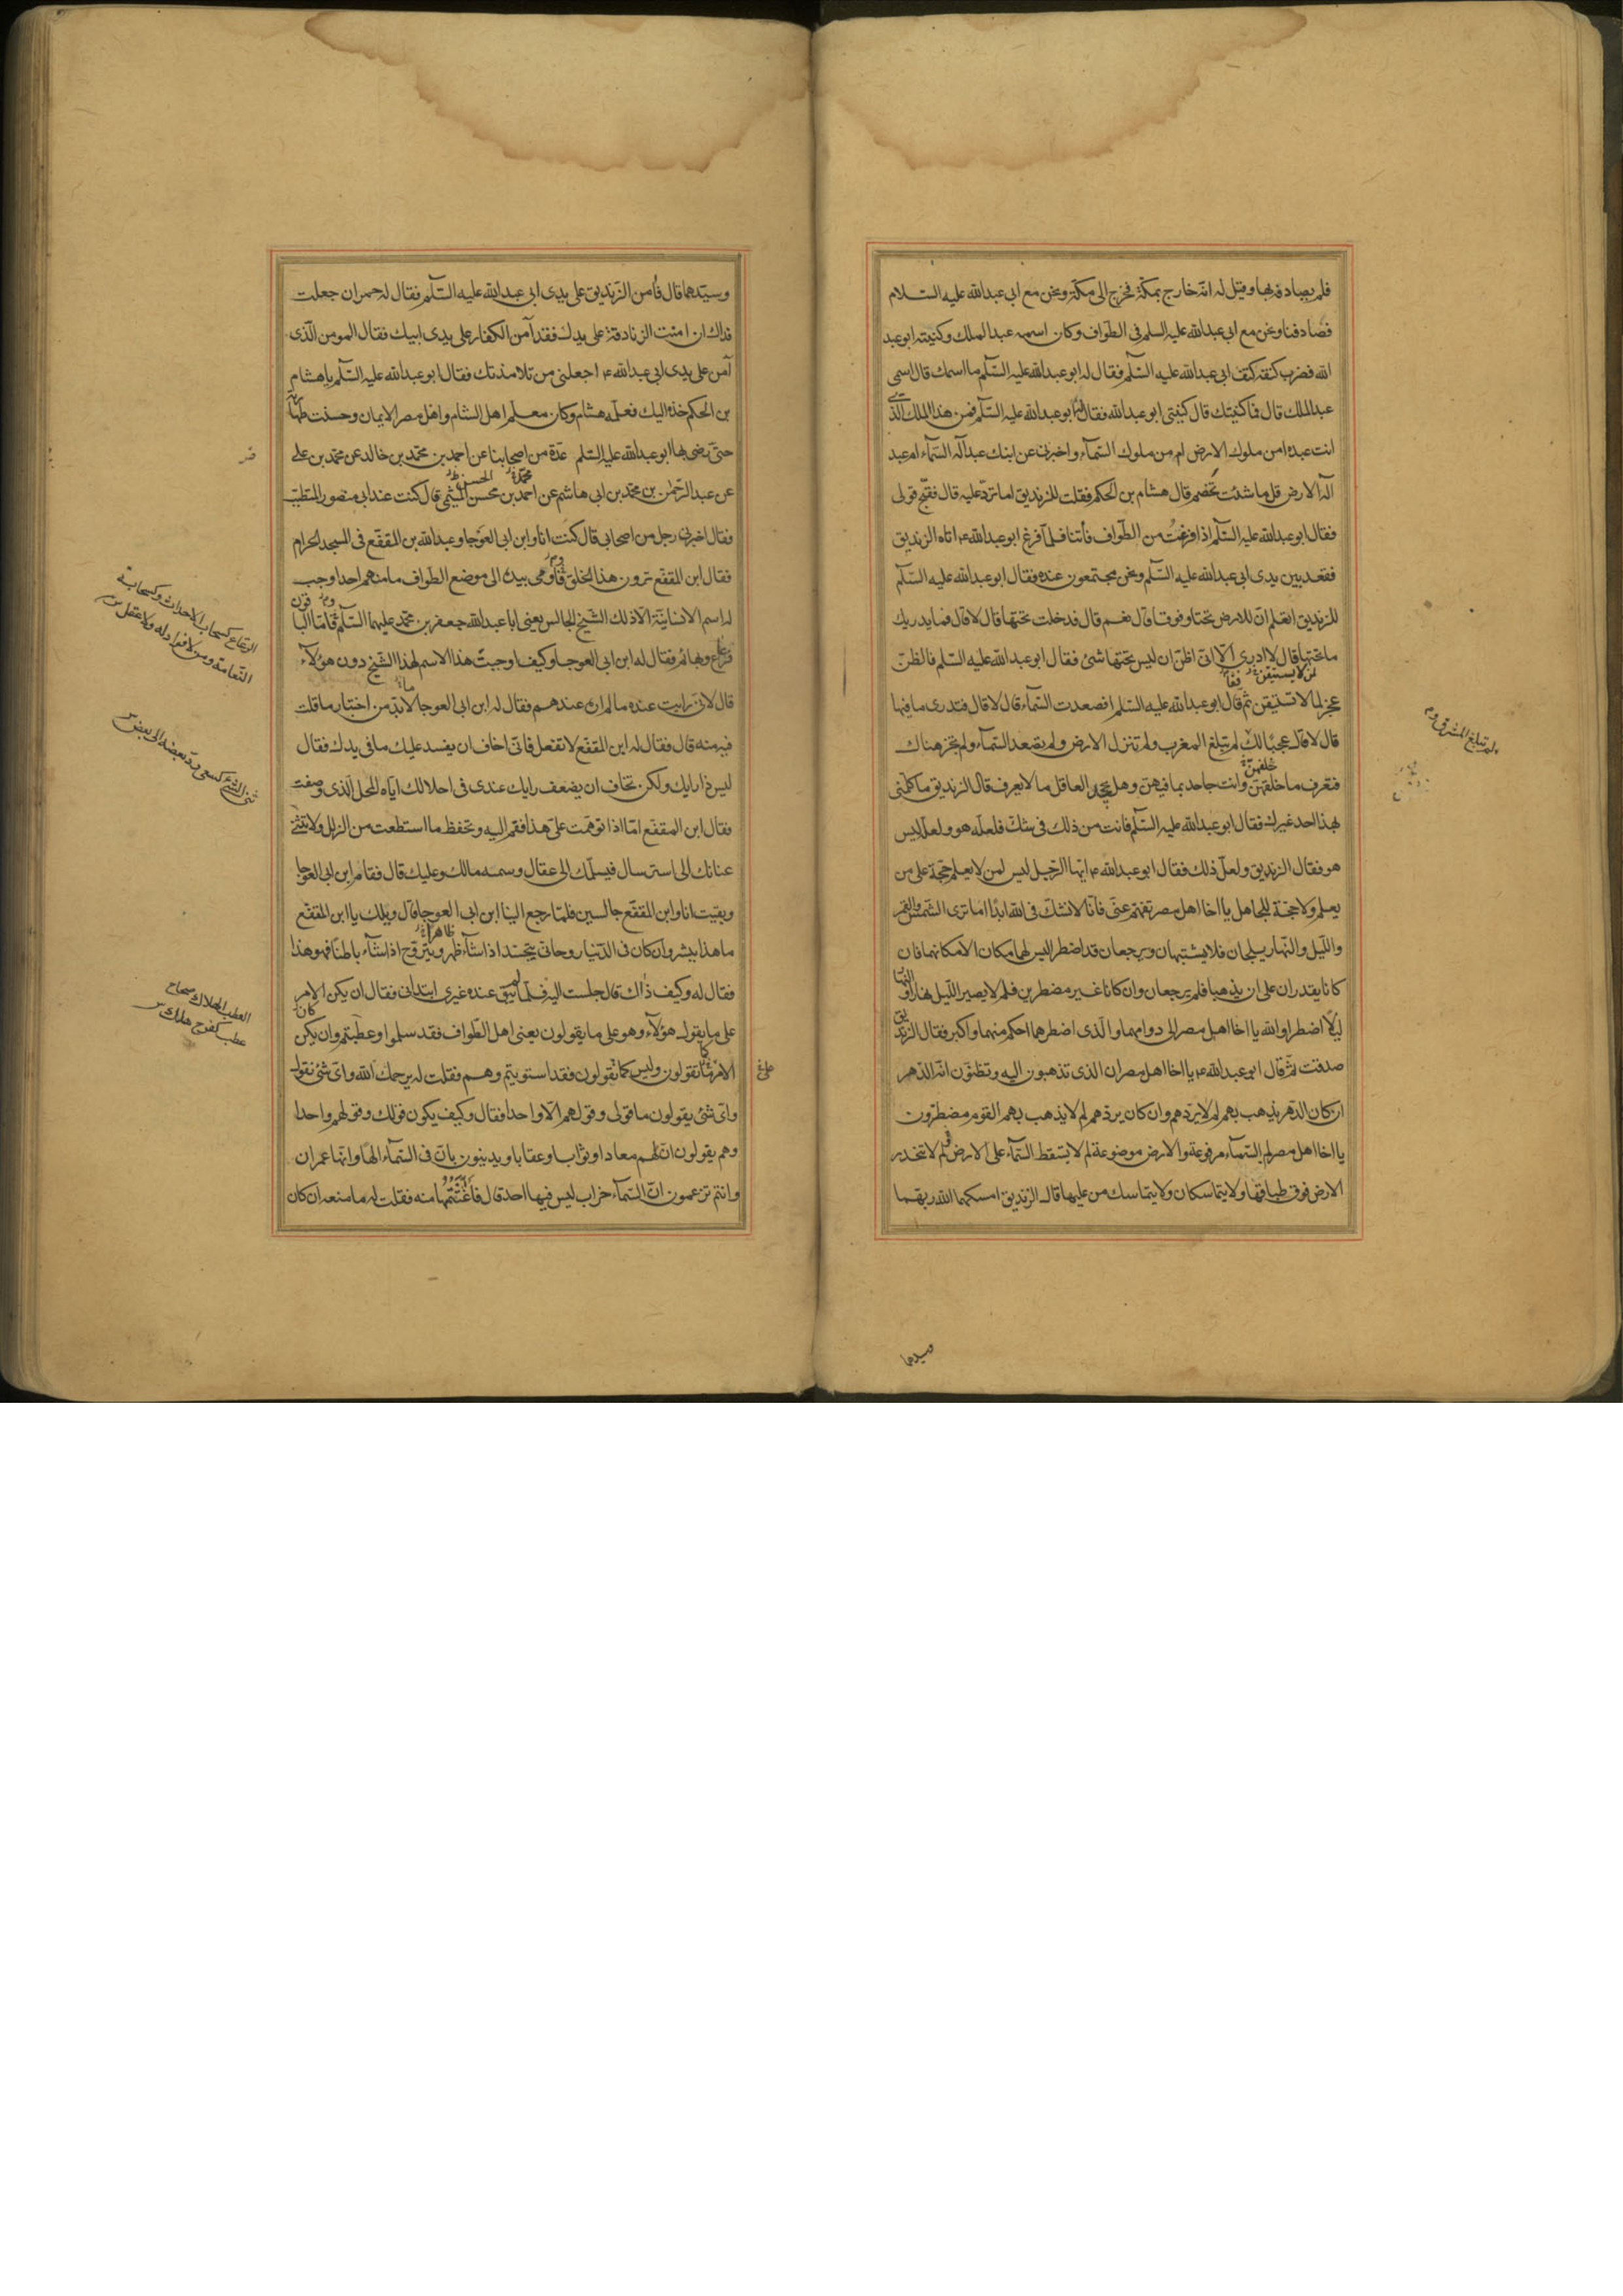 فلم يصادفه بها وقيل له انه خارج بمكة فخرج الى مكة ونحن مع ابي عبد الله عليه السلام
فصادفنا ونحن مع ابي عبد الله عليه السلم في الطواف وكان اسمه عبد الملك وكنيته ابو عبد
الله فضرب كتفه كتف ابي عبد الله عليه السلم فقال له ابو عبد الله عليه السلم ما اسمك قال اسمي
عبد الملك قال فما كنيتك قال كنيتي ابو عبد الله فقال له ابو عبد الله عليه السلم فمن هذا الملك الذي
انت عبده امن ملوك الارض ام من ملوك السماء واخبرني عن ابنك عبد اله السماء ام عبد
اله الارض قل ما شئت تخصم قال هشام بن الحكم فقلت للزنديق اما ترد عليه قال فقبح قولي
فقال ابو عبد الله عليه السلم اذا فرغت من الطواف فأتنا فلما فرغ ابو عبد الله ع اتاه الزنديق
فقعد بين يدي ابي عبد الله عليه السلم ونحن مجتمعون عنده فقال ابو عبد الله عليه السلم
للزنديق اتعلم ان للارض تحتا وفوقا قال نعم قال فدخلت تحتها قال لا قال فما يدريك
ما تحتها قال لا ادري الا اني اظن ان ليس تحتها شئ فقال ابو عبد الله عليه السلم فالظن
لمن لا يستيقن
عجز لما لا تستيقن ثم قال ابو عبد الله عليه السلم افصعدت السماء قال لا قال فتدري ما فيها
قال لا قال عجبا لك لم تبلغ المغرب ولم تنزل الارض ولم تصعد السماء ولم تجز هناك
ولم تبلغ المشرق
خلفهن
فتعرف ما خلقهن وانت جاحد بما فيهن وهل يجحد العاقل ما لا يعرف قال الزنديق ما كلمني
بهذا احد غيرك فقال ابو عبد الله عليه السلم فانت من ذلك في شك فلعله هو ولعله ليس
هو فقال الزنديق ولعل ذلك فقال ابو عبد الله ع ايها الرجل ليس لمن لا يعلم حجة على من
يعلم ولا حجة للجاهل يا اخا اهل مصر تفهم عني فانا لا نشك في الله ابدا اما ترى الشمس والقمر
والليل والنهار يلجان فلا يشتبهان ويرجعان قد اضطرا ليس لهما مكان الا مكانهما فان
كانا يقدران على ان يذهبا فلم يرجعان وان كانا غير مضطرين فلم لا يصير الليل نهارا والنهار
ليلا اضطرا والله يا اخا اهل مصر الى دوامهما والذي اضطرهما احكم منهما واكبر فقال الزنديق
صدقت ثم قال ابو عبد الله ع يا اخا اهل مصر ان الذي تذهبون اليه وتظنون انه الدهر
ان كان الدهر يذهب بهم لم لا يردهم وان كان يردهم لم لا يذهب بهم القوم مضطرون
يا اخا اهل مصر لم السماء مرفوعة والارض موضوعة لم لا يسقط السماء على الارض لم لا تنحدر
الارض فوق طباقها ولا يتماسكان ولا يتماسك من عليها قال الزنديق امسكهما الله ربهما
وسيدهما
وسيدهما قال فآمن الزنديق على يدي ابي عبد الله عليه السلم فقال له حمران جعلت
فداك ان امنت الزنادقة على يدك فقد آمن الكفار على يدي ابيك فقال المومن الذي
آمن على يدي ابي عبد الله ع اجعلني من تلامذتك فقال ابو عبد الله عليه السلم يا هشام
بن الحكم خذه اليك فعلمه هشام وكان معلم اهل الشام واهل مصر الايمان وحسنت طهارته
حتى رضي بها ابو عبد الله عليه السلم عدة من اصحابنا عن احمد بن محمد بن خالد عن محمد بن علي
محمد الحسن
عن عبد الرحمن بن محمد بن ابي هاشم عن احمد بن محسن الميثمي قال كنت عند ابي منصور المتطبب
فقال اخبرني رجل من اصحابي قال كنت انا وابن ابي العوجا وعبد الله بن المقفع في المسجد الحرام
فقال ابن المقفع ترون هذا الخلق واومى بيده الى موضع الطواف ما منهم احد اوجب
له اسم الانسانية الا ذلك الشيخ الجالس يعني ابا عبد الله جعفر بن محمد عليهما السلم فاما الباقون
فرعاع وبهائم فقال له ابن ابي العوجا وكيف اوجبت هذا الاسم لهذا الشيخ دون هؤلاء
قال لاني رايت عنده ما لم اره عندهم فقال له ابن ابي العوجا لا بد من اختبار ما قلت
فيه منه قال فقال له ابن المقفع لا تفعل فاني اخاف ان يفسد عليك ما في يدك فقال
ليس ذا رايك ولكن تخاف ان يضعف رايك عندي في احلالك اياه المحل الذي وصفت
فقال ابن المقفع اما اذا توهمت علي هذا فقم اليه وتحفظ ما استطعت من الزلل ولا تثني
عنانك الى استرسال فيسلمك الى عقال وسمه مالك وعليك قال فقام ابن ابي العوجا
وبقيت انا وابن المقفع جالسين فلما رجع الينا ابن ابي العوجا قال ويلك يا ابن المقفع
ظاهرا
ما هذا ببشر وان كان في الدنيا روحاني يتجسد اذا شاء ظهر ويتروح اذا شاء باطنا فهو هذا
فقال له وكيف ذاك قال جلست اليه فلما لم يبق عنده غيري ابتداني فقال ان يكن الامر
على ما يقول هؤلاء وهو على ما يقولون يعني اهل الطواف فقد سلموا وعطبتم وان يكن
الامر كما تقولون وليس كما تقولون فقد استويتم وهم فقلت له يرحمك الله واي شئ نقول
واي شئ يقولون ما قولي وقولهم الا واحدا فقال وكيف يكون قولك وقولهم واحدا
وهم يقولون ان لهم معادا وثوابا وعقابا ويدينون بان في السماء الها وانها عمران
وانتم تزعمون ان السماء خراب ليس فيها احد قال فاغتنمتها منه فقلت له ما منعه ان كان
الرعاع كسحاب الاحداث وكسحابة
النعامة ومن لا فؤاد له ولا عقل
ثنى الشئ كسعى رد بعضه الى بعض
العطب الهلاك صحاح
عطب كفرح هلك